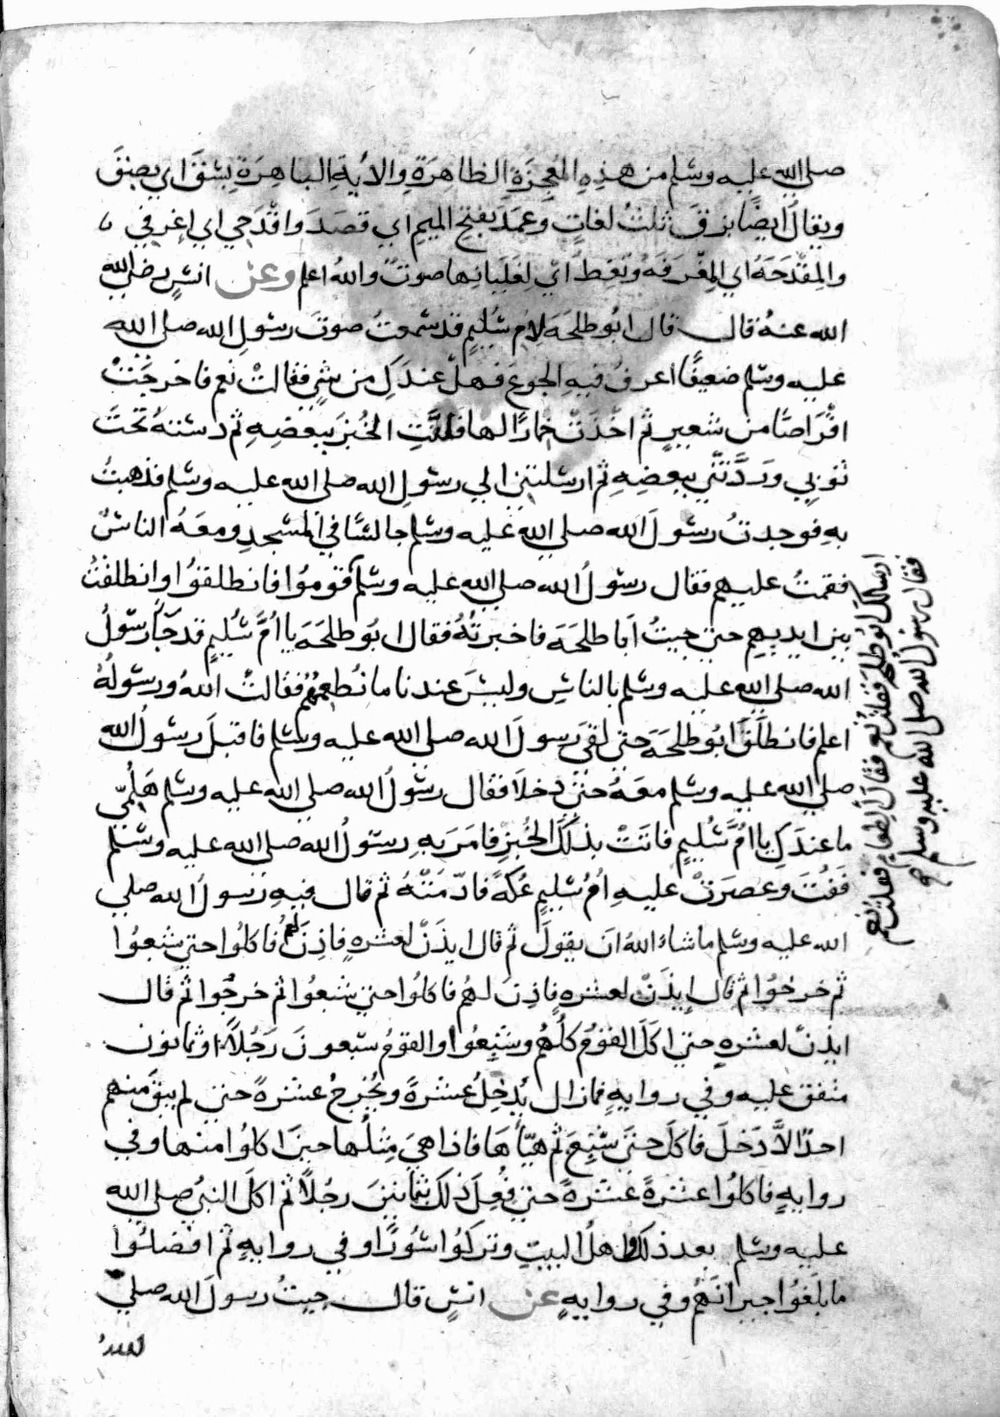 صلى الله عليه وسلم من هذه المعجزة الظاهرة والاية الباهرة بسق اي بصق
ويقال ايضا بزق ثلث لغات وعمد بفتح الميم اي قصد واقدحي اي اغرفي
والمقدحه اي المغرفه وتغط اي لغليانها صوت والله اعلم وعن انس رضي الله
الله عنه قال قال ابو طلحه لام سليم قد سمعت صوت رسول الله صلى الله
عليه وسلم ضعيفا اعرف فيه الجوع فهل عندك من شي فقالت نعم فاخرجت
اقراصا من شعير ثم اخذت خمارا لها فلفت الخبز ببعضه ثم دسته تحت
ثوبي وردتني ببعضه ثم ارسلتني الي رسول الله صلى الله عليه وسلم فذهبت
به فوجدت رسول الله صلى الله عليه وسلم جالسا في المسجد ومعه الناس
فقمت عليهم فقال رسول الله صلى الله عليه وسلم قوموا فانطلقوا وانطلقت
بين ايديهم حتى جيت ابا طلحه فاخبرته فقال ابو طلحه يا ام سليم قد جا رسول
الله صلى الله عليه وسلم بالناس وليس عندنا ما نطعمهم فقالت الله ورسوله
اعلم فانطلق ابو طلحه حتى لقى رسول الله صلى الله عليه وسلم فاقبل رسول الله
صلى الله عليه وسلم معه حتى دخلا فقال رسول الله صلى الله عليه وسلم هلمي
ما عندك يا ام سليم فاتت بذلك الخبز فامر به رسول الله صلى الله عليه وسلم
ففت وعصرت عليه ام سليم عكة فادمته ثم قال فيه رسول الله صلى
الله عليه وسلم ما شاء الله ان يقول ثم قال ايذن لعشره فاذن لهم فاكلوا حتى شبعوا
ثم خرجوا ثم قال ايذن لعشره فاذن لهم فاكلوا حتى شبعوا ثم خرجوا ثم قال
ايذن لعشره حتى اكل القوم كلهم وشبعوا والقوم سبعون رجلا او ثمانون
متفق عليه وفي روايه فما زال يدخل عشرة ويخرج عشرة حتى لم يبق منهم
احد الا دخل فاكل حتى شبع ثم هياها فاذا هي مثلها حين اكلوا منها وفي
روايه فاكلوا عشرة عشرة حتى فعل ذلك بثمانين رجلا ثم اكل النبي صلى الله
عليه وسلم بعد ذلك واهل البيت وتركوا سورا وفي روايه ثم افضلوا
ما بلغوا جيرانهم وفي روايه عن انس قال جيت رسول الله صلى
ارسلك ابو طلحه فقلت نعم فقال الطعام فقلت نعم
فقال رسول الله صلى الله عليه وسلم